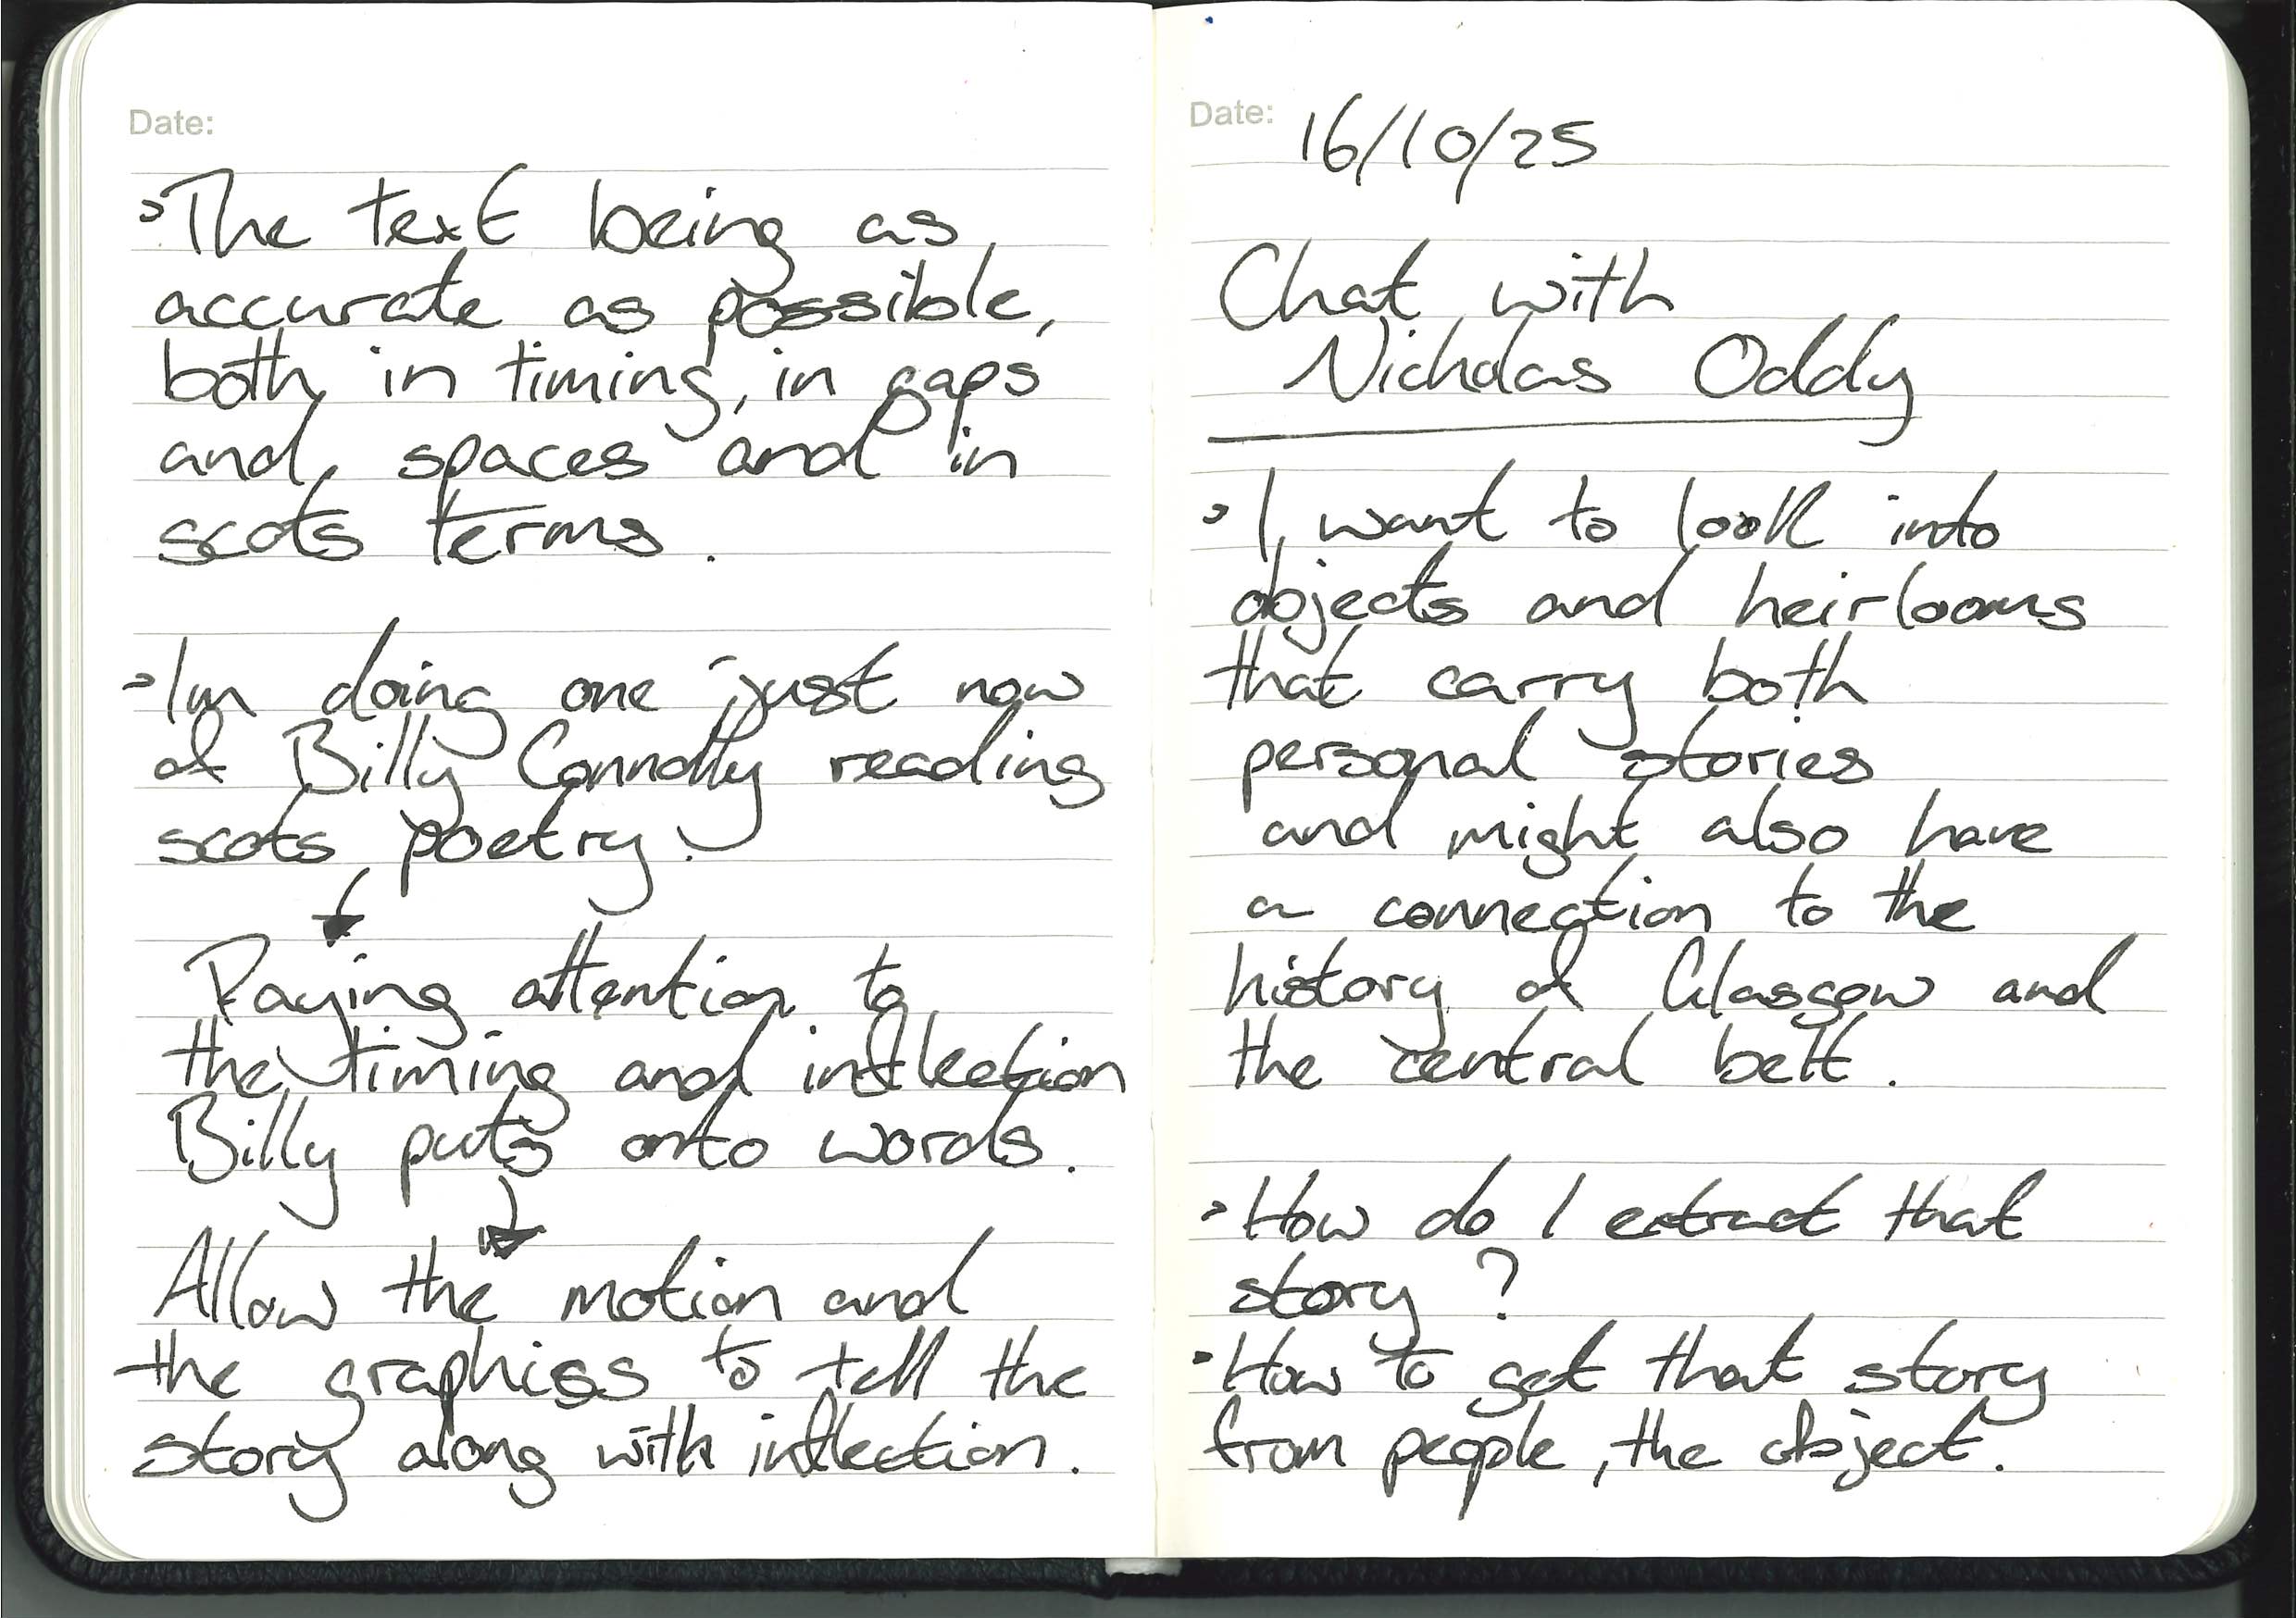 Date:
The text being as
accurate as possible,
both in timing, in gaps
and spaces and in
scots terms.
Im doing one just now
of Billy Connolly reading
scots poetry.
Paying attention to
the timing and inflection
Billy puts onto words.
Allow the motion and
the graphics to tell the
story along with inflection.
Date: 16/10/25
Chat with
Nicholas Oddy
I want to look into
objects and heirlooms
that carry both
personal stories
and might also have
a connection to the
history of Glasgow and
the central belt.
How do I extract that
story?
How to get that story
from people, the object.